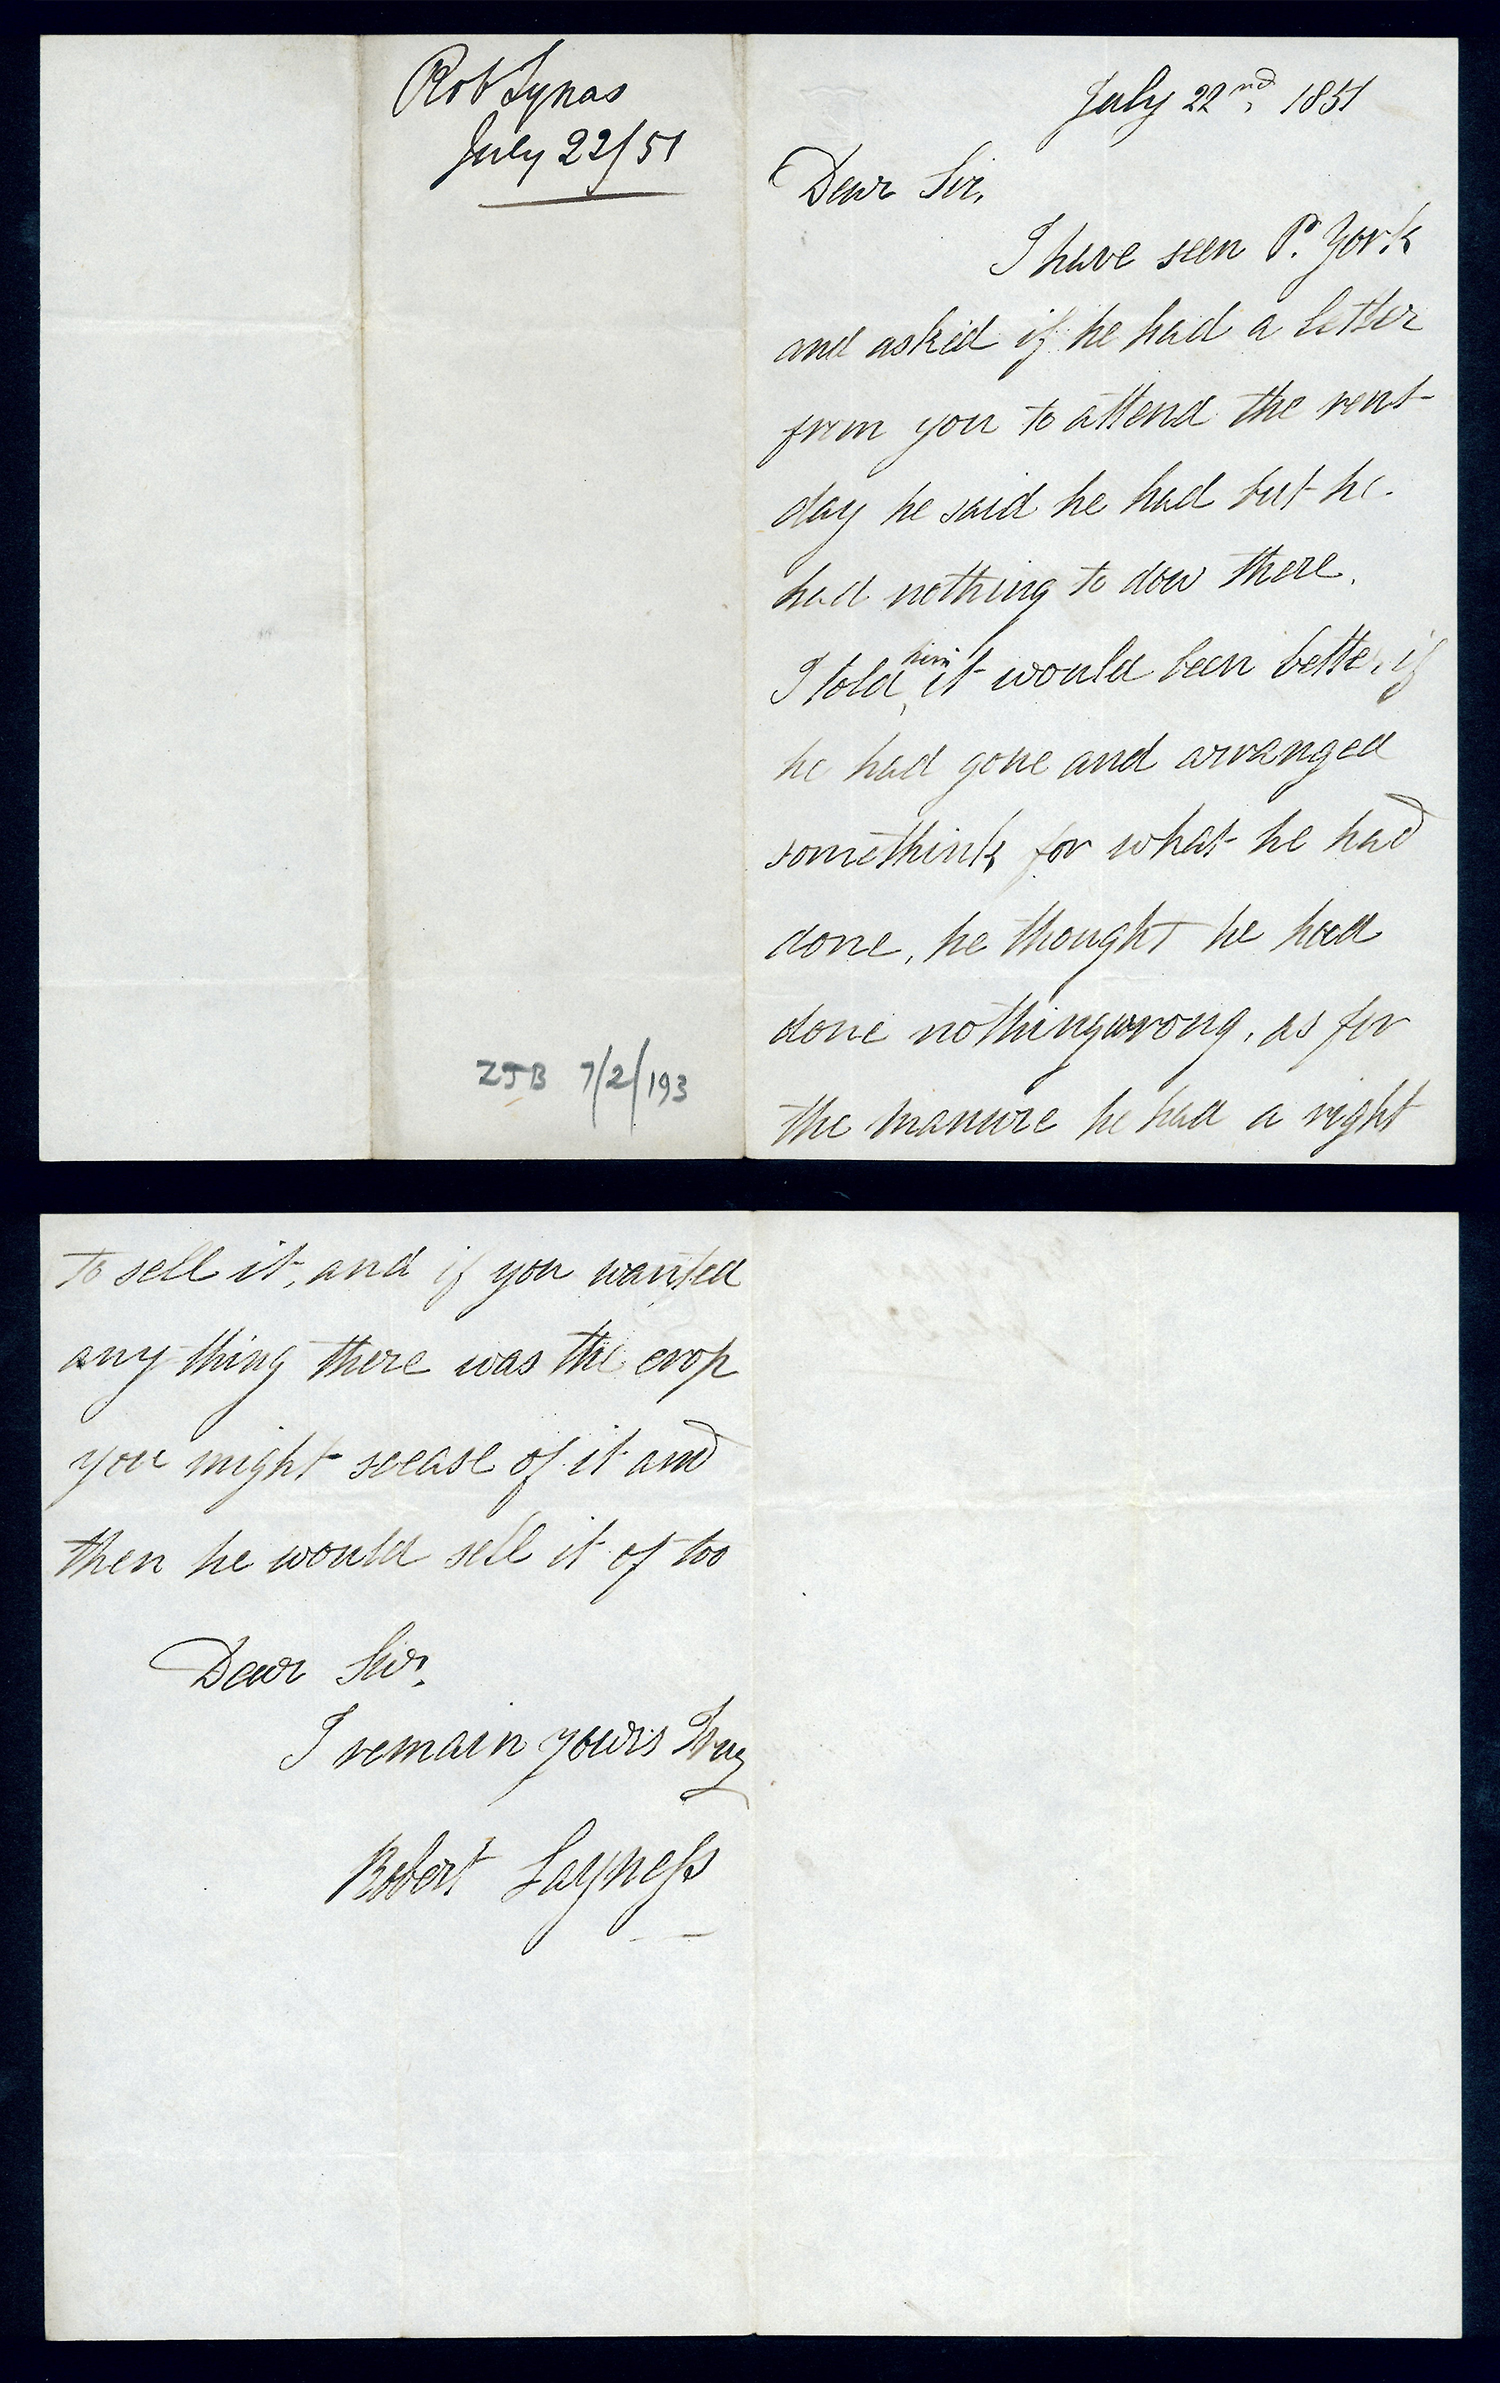 Rob Synas
July 22/51
ZJB 7/2/193
July 22nd, 1851
Dear Sir,
I have seen P. York
and asked if he had a letter
from you to attend the rent
day he said he had but he
had nothing to dow there.
I told him it would been better if
he had gone and arranged
somethink for what he had
done, he thought he had
done nothing wrong, as for
the manure he had a right
to sell it, and if you wanted
any thing there was the crop
you might sease of it and
then he would sell it of too
Dear Sir,
I remain yours Truy
Robert Sayness